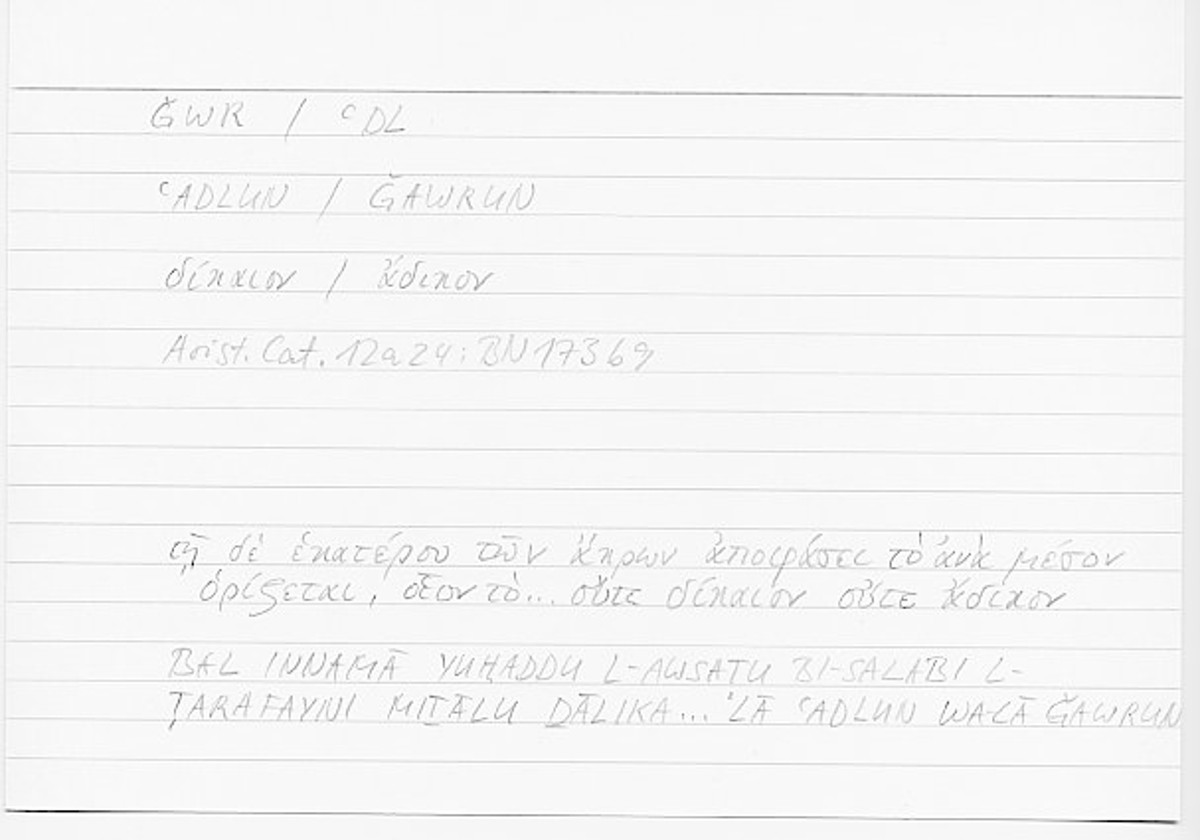 ǦWR / ʿDL
ʿADLUN / ǦAWRUN
δίκαιον / ἄδικον
Arist. Cat. 12a24: BN 17369
τῇ δὲ ἑκατέρου τῶν ἄκρων ἀποφάσει τὸ ἀνὰ μέσον
ὁρίζεται, οἷον τὸ... οὔτε δίκαιον οὔτε ἄδικον
BAL INNAMĀ YUḤADDU L-AWSATU BI-SALABI L-
ṬARAFAYNI MIṮĀLU ḎĀLIKA... 'LĀ ʿADLUN WA-LĀ ǦAWRUN